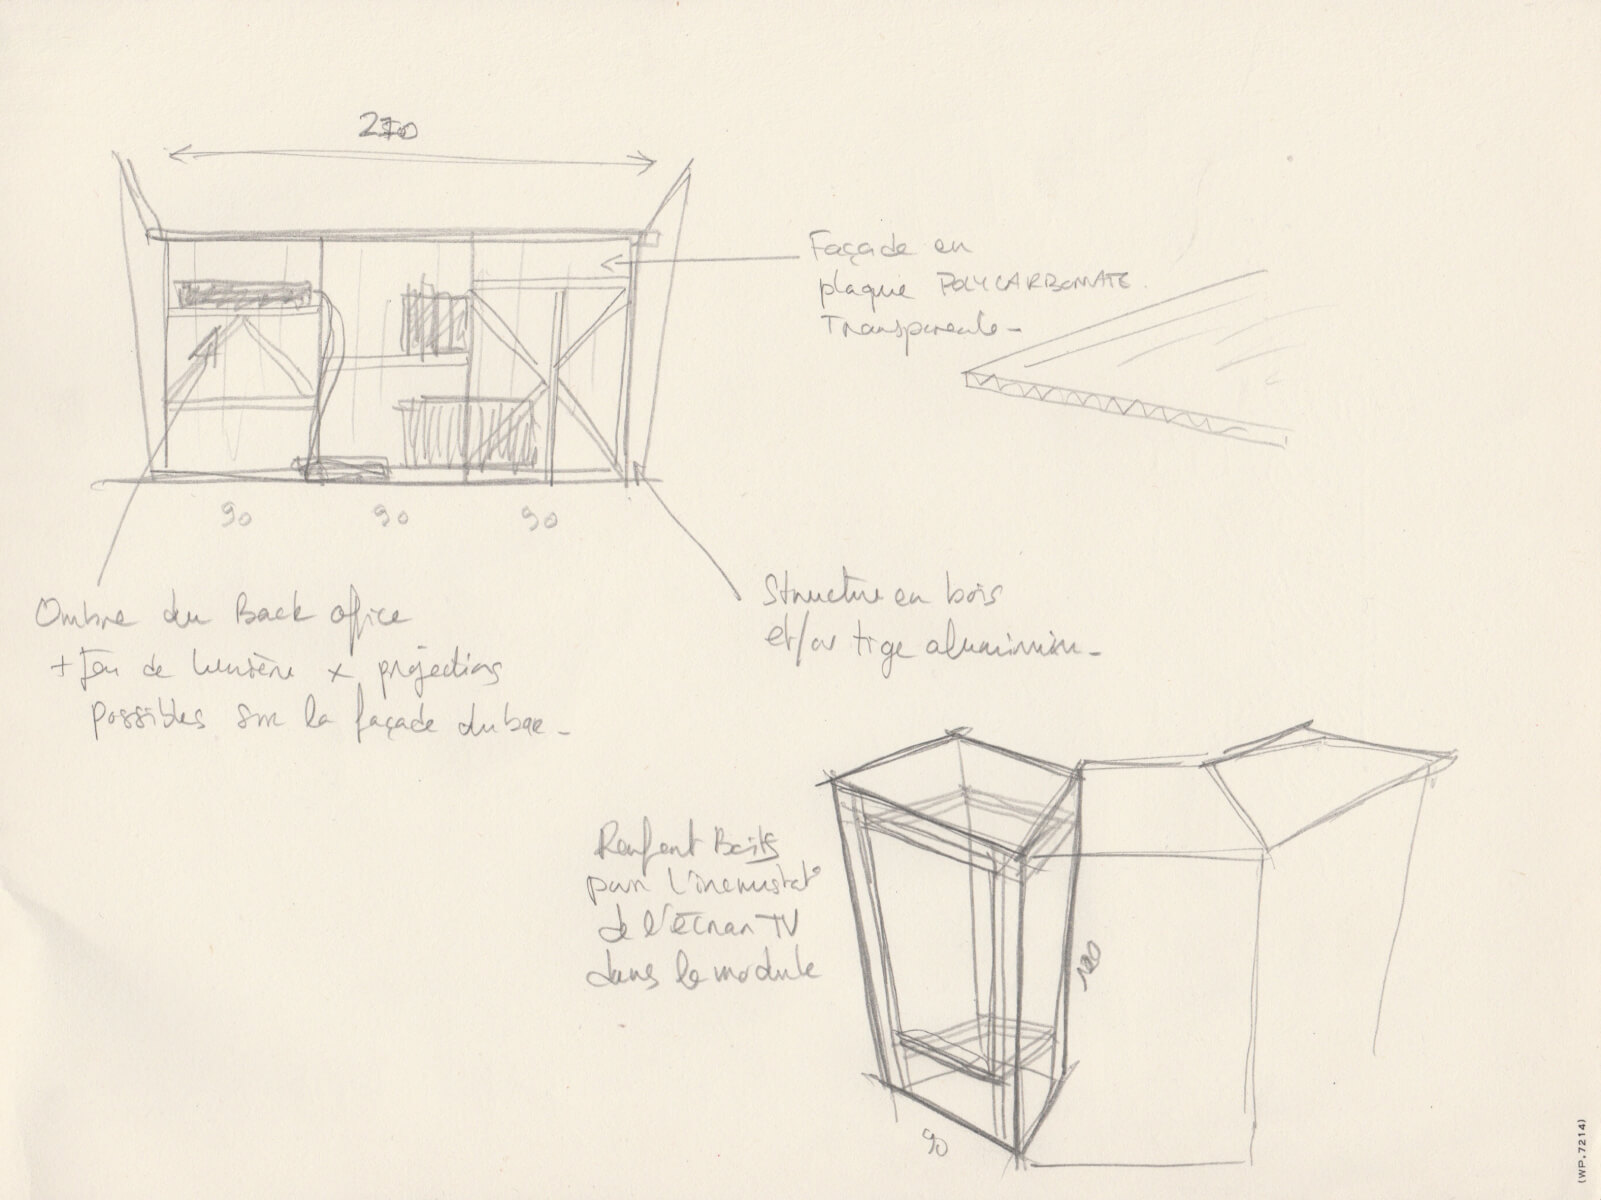 270
Façade en
plaque POLYCARBONATE
Transparente -
90 90 90
Ombre du Back office
+ Jeu de lumière x projections
possibles sur la façade du bar -
Structure en bois
et/ou tige aluminium -
Renfort Bois
pour l'incrustat°
de l'ÉCran TV
dans le module
90
(WP.7214)